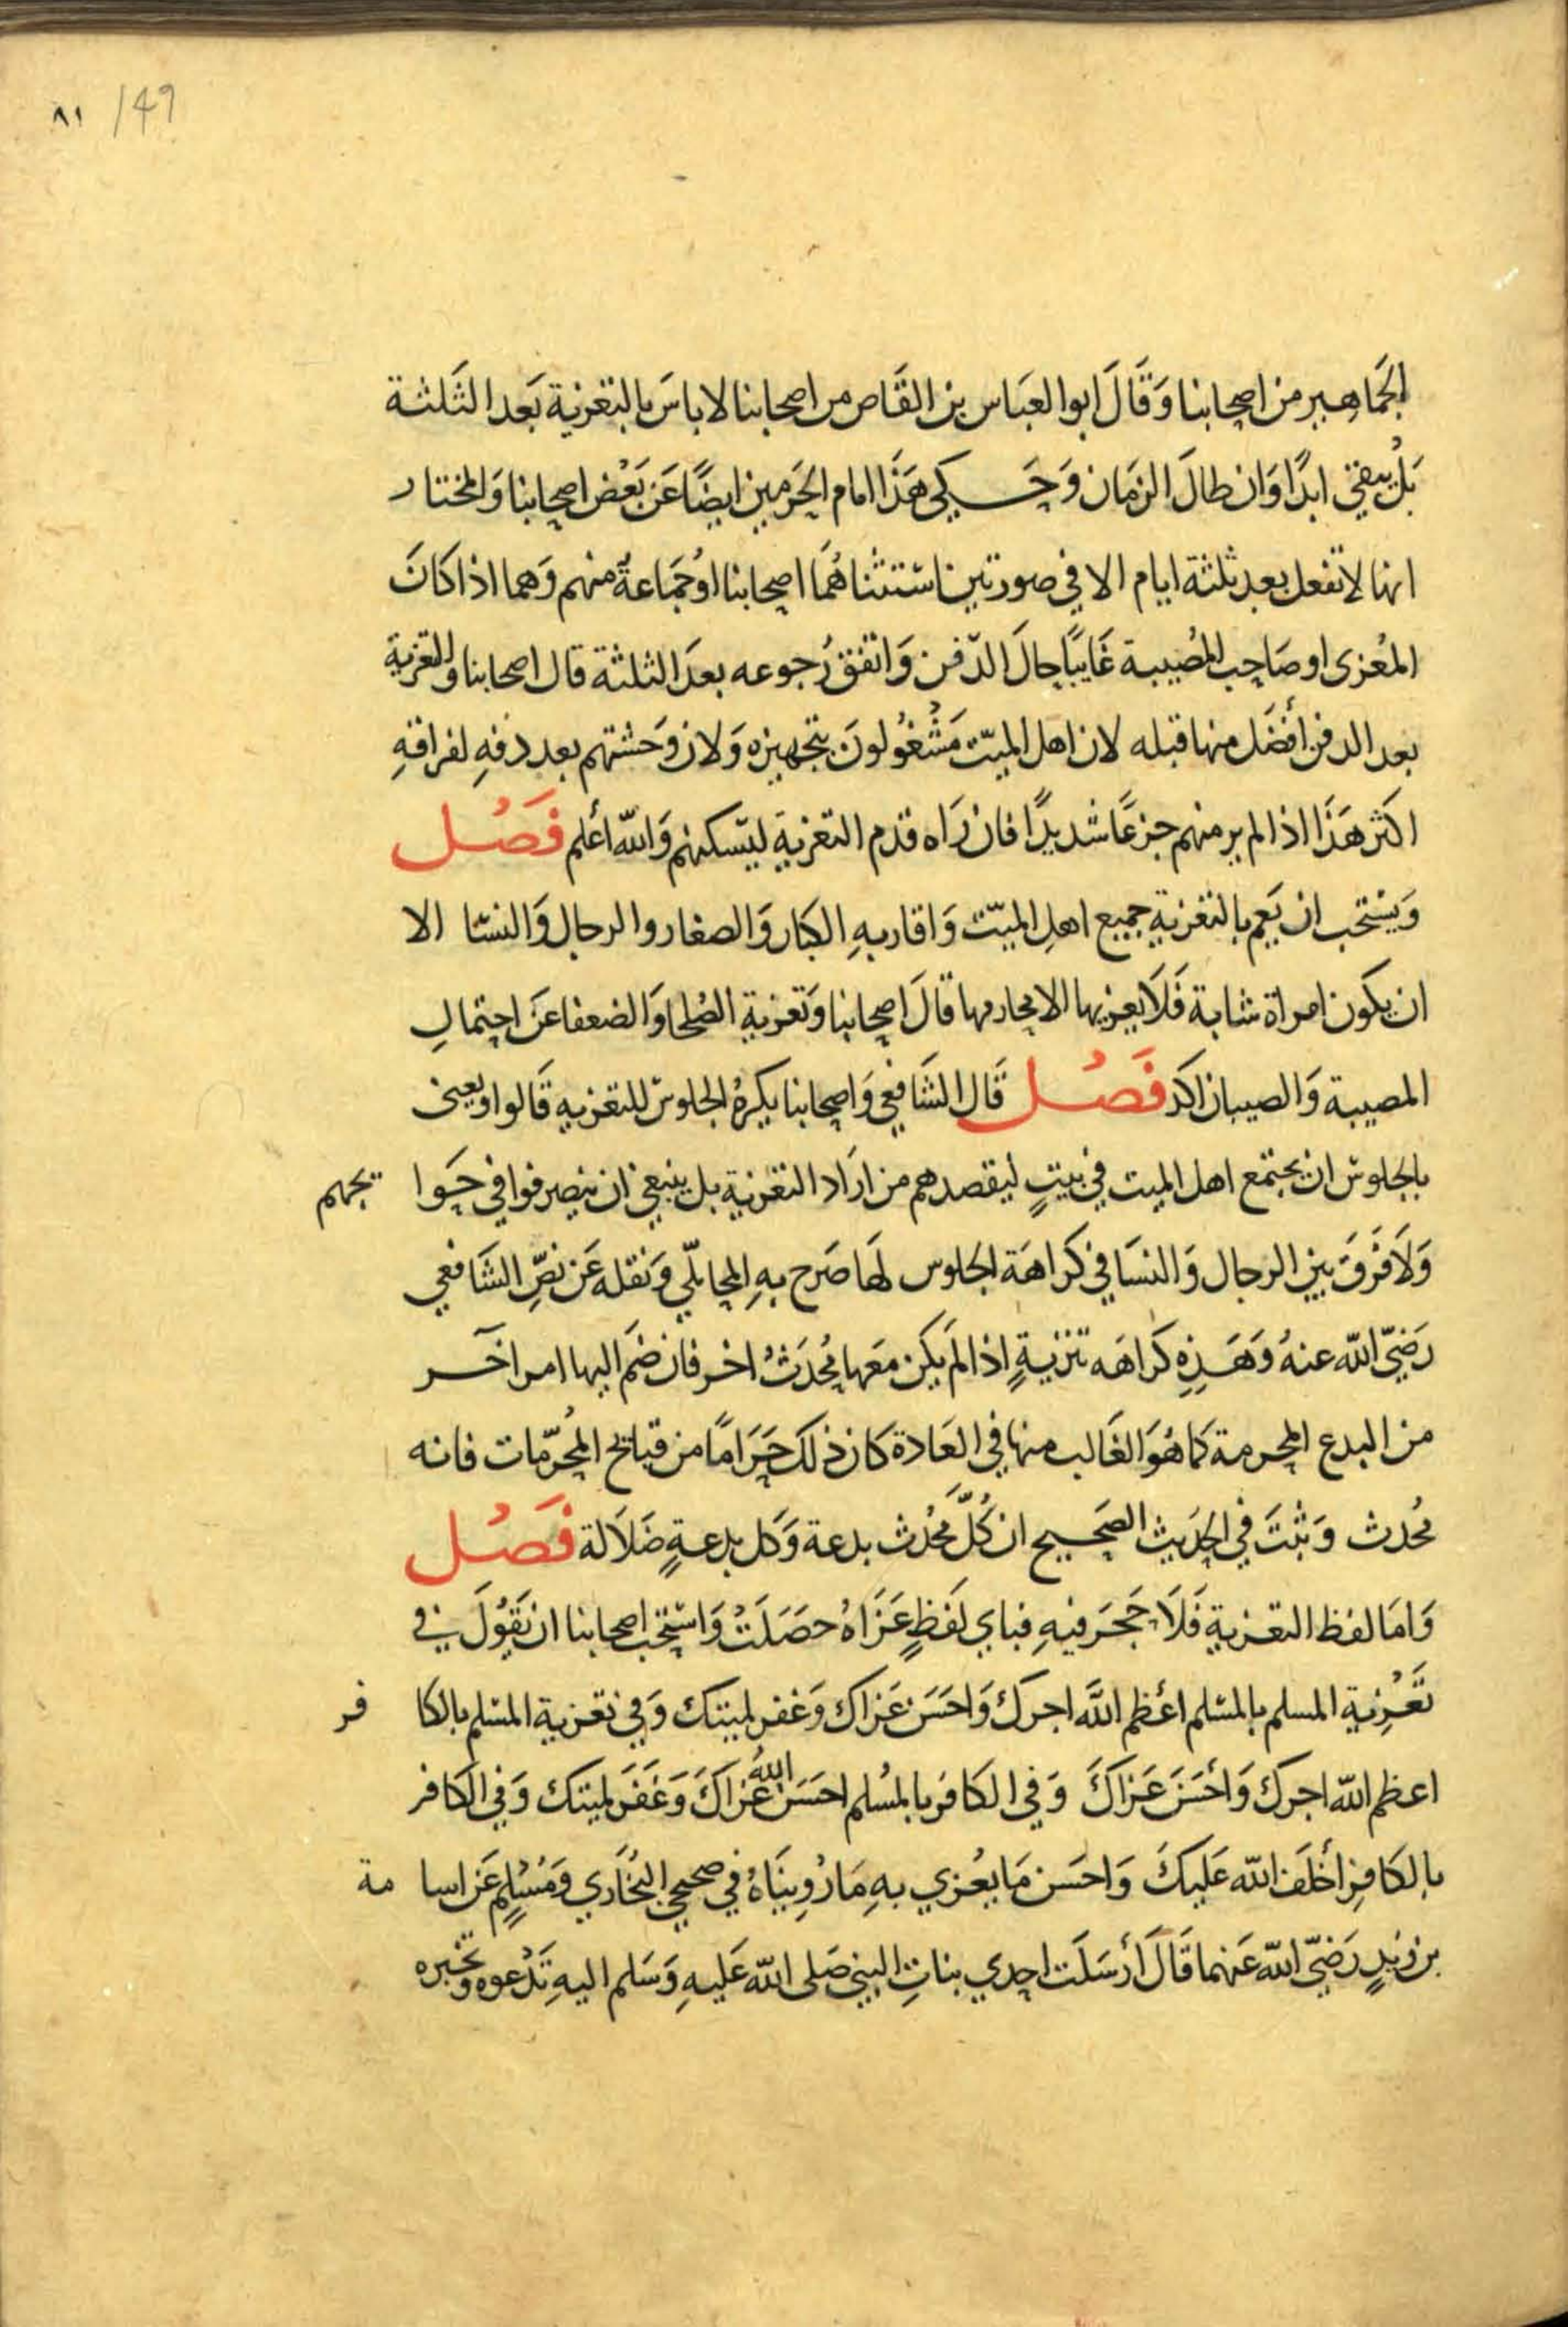 ٨١ /49
الجَماهير من اصحابنا وَقَالَ ابو العَباس بن القَاص من اصحابنا لا باسَ بالتعزية بَعد الثَلثة
بَلْ يبقى ابدًا وَان طالَ الزمَان وَحَكي هَذَا امام الحَرمين ايضًا عَن بَعْض اصحابنا وَالمختار
انها لا تفعل بعد ثلثة ايام الا في صورتين استثناهُمَا اصحابنا اوْ جَمَاعةٌ منهم وَهما اذا كَانَ
المعُزى او صَاحب المصُيبة غَايبًا حالَ الدّفن وَاتفق رُجوعه بعدَ الثلثة قال اصحابنا والتعزية
بعد الدفن أفضَل منها قبله لان اهل الميّت مَشْغُولونَ بتجهيزه وَلان وَحشتهم بعد دفنهِ لفراقهِ
اكثر هَذَا اذا لم ير منهم جزعًا شديدًا فان رَاه قدم التعزية ليسكنهم وَالله أعلم فَصْل
وَيستحب ان يَعم بالتعزيةِ جميع اهلِ الميّت وَاقاربهِ الكبار وَالصغار والرجال وَالنسَا الا
ان يكون امراة شابة فَلَا يعزيها الا محارمها قالَ اصحابنا وَتعزية الصُلحا وَالضعفا عَن احتمالِ
المصيبة وَالصبيان اكد فَصْل قَال الشَافعي وَاصحابنا يكرهُ الجلوس للتعزيه قَالوا ويعنى
بالجلوس ان يجتمع اهل الميت في بيتٍ ليقصدهم من ارَاد التعزية بل ينبغي ان ينصرفوا في حَوا يجهم
وَلَا فَرقَ بين الرجال وَالنسَا في كَراهَة الجلوس لهَا صَرح بهِ المحاملّي وَنقله عَن نصِّ الشَافعي
رَضيَ الله عنهُ وَهَذِهِ كَراهَه تنزيةٍ اذا لَم يكن معَها مُحدَثٌ اخر فان ضم اليها امر اخَر
من البدع المحرمة كما هُوَ الغَالب منها في العَادة كان ذلكَ حَرَامًا من قبايح المُحَرّمات فانه
مُحدث وَثبتَ في الحَديث الصَحيح ان كُلَّ مُحْدث بدعة وَكل بدعةٍ ضَلَالة فَصْل
وَامَا لفظ التعزيةِ فَلَا حَجَرَ فيهِ فباي لَفظٍ عَزَاهُ حصَلَتْ وَاستحب اصحابنا ان يَقُولَ في
تَعْزِية المسلم بالمسْلم أعْظم اللّهَ اجرَكَ وَاحسَنَ عَزاكَ وَغفر لميتكَ وَفي تعزية المسْلم بالكا فر
اعظم الله اجرَكَ وَأحْسَنَ عَزاكَ وَفي الكَافر بالمُسْلم احسَنَ اللهُ عَزاكَ وَغَفَرَ لميتكَ وَفي الكَافر
بالكَافرِ أخْلَفَ الله عَليكَ وَاحسَن مَا يعُزي بهِ مَا رُويِنَاهُ في صحيحي البُخَاري وَمُسْلِمٍ عَن اسا مة
بن زيدٍ رَضيَ الله عَنهما قَالَ أرْسَلَت احدي بناتِ النبي صَلى الله عَليهِ وَسَلم اليهِ تَدْعوه وتخبره